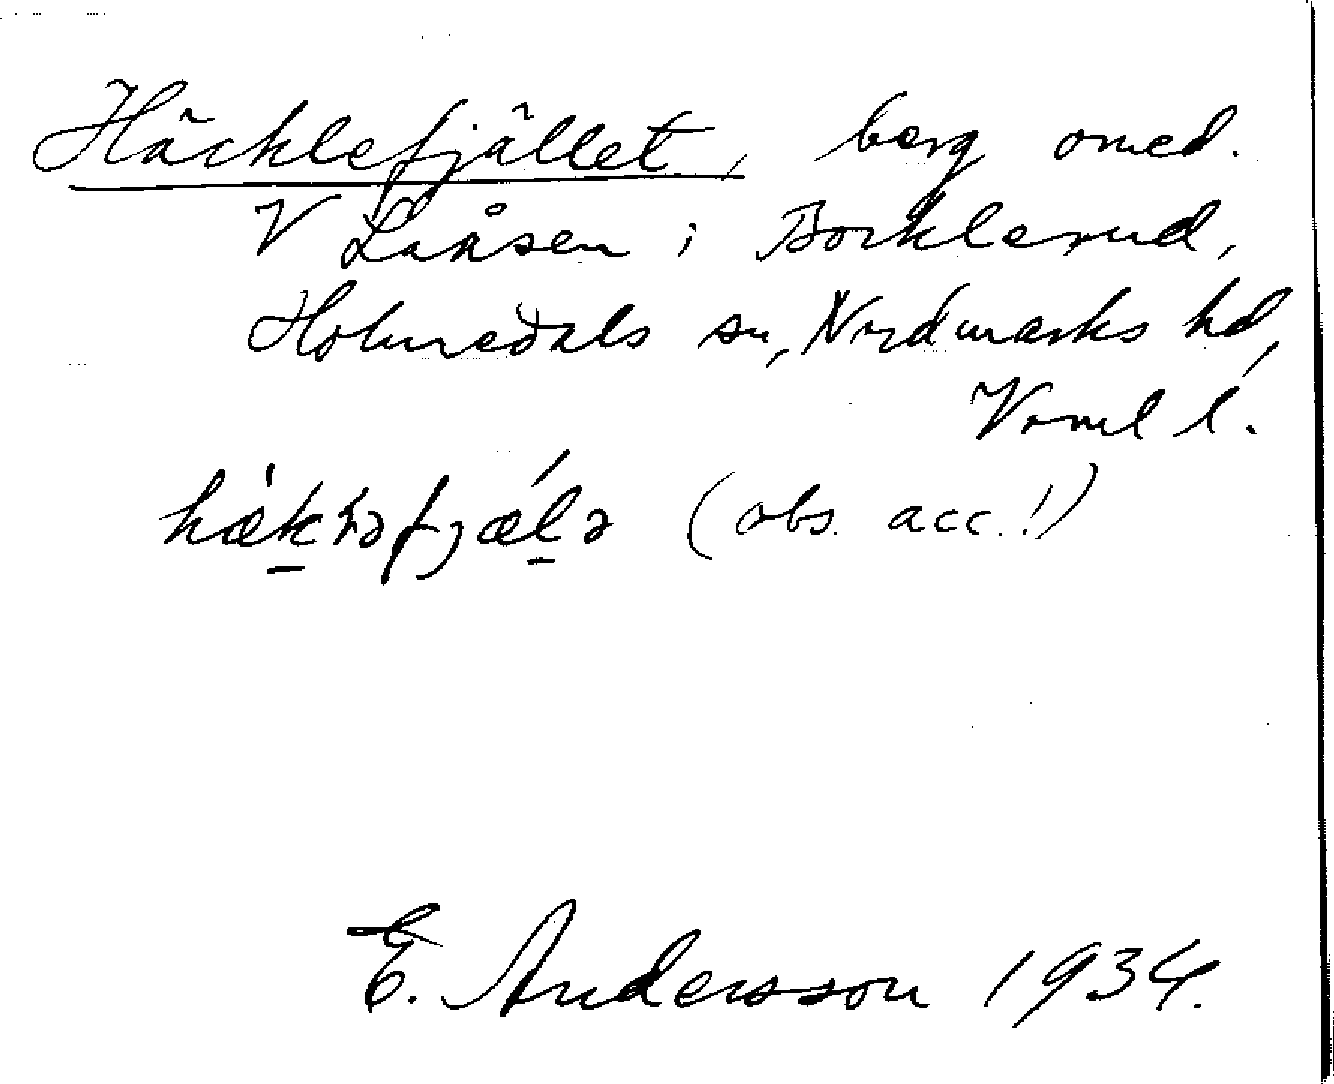 Häcklefjället, berg omed.
V Laxåsen i Bocklerud,
Holmedals sn, Nordmarks hd,
Vrml l.
(obs. acc.!)
E. Andersson 1934.